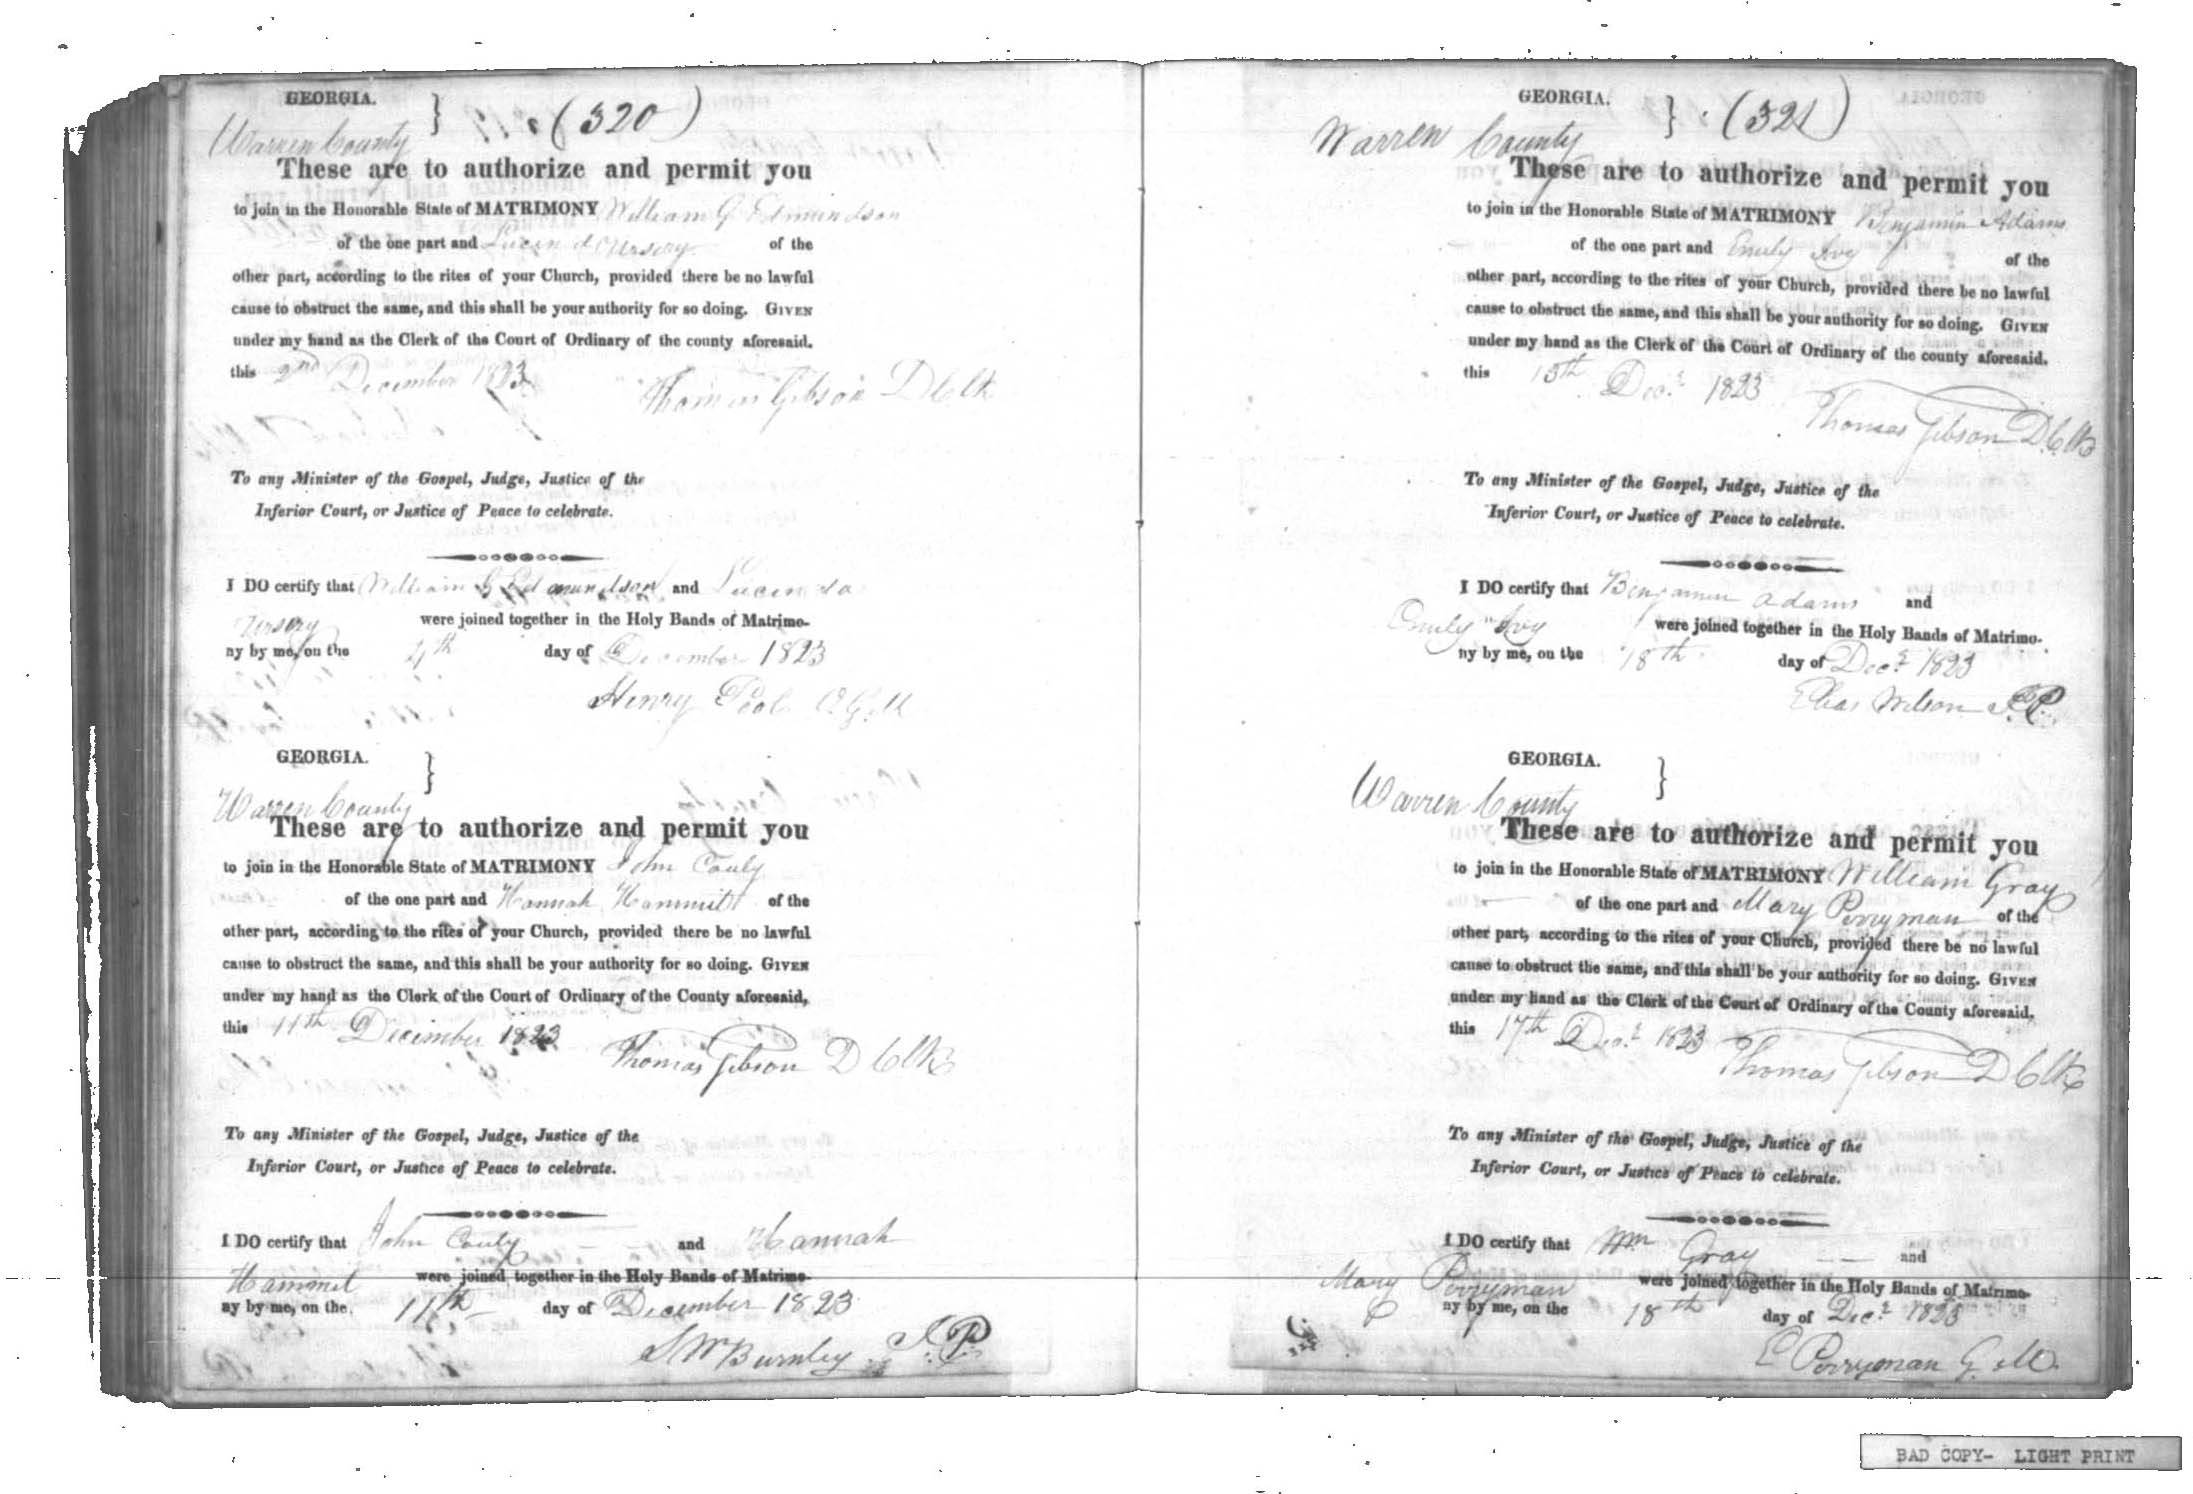 GEORGIA.
Warren County } (320)
These are to authorize and permit you
to join in the Honorable State of MATRIMONY William G Edmundson
of the one part and Lucinda Ursery of the
other part, according to the rites of your Church, provided there be no lawful
cause to obstruct the same, and this shall be your authority for so doing. GIVEN
under my hand as the Clerk of the Court of Ordinary of the county aforesaid.
this 2nd December 1823
Thomas Gibson D Clk
To any Minister of the Gospel, Judge, Justice of the
Inferior Court, or Justice of Peace to celebrate.
I DO certify that William G Edmundson and Lucinda
Ursery were joined together in the Holy Bands of Matrimo-
ny by me, on the 4th day of December 1823
Henry Pool
GEORGIA.
Warren County }
These are to authorize and permit you
to join in the Honorable State of MATRIMONY John Couly
of the one part and Hannah Hammit of the
other part, according to the rites of your Church, provided there be no lawful
cause to obstruct the same, and this shall be your authority for so doing. GIVEN
under my hand as the Clerk of the Court of Ordinary of the County aforesaid,
this 11th December 1823
Thomas Gibson D Clk
To any Minister of the Gospel, Judge, Justice of the
Inferior Court, or Justice of Peace to celebrate.
I DO certify that John Couly and Hannah
Hammit were joined together in the Holy Bands of Matrimo-
ny by me, on the 11th day of December 1823
S W Burnley J.P.
GEORGIA.
Warren County } (321)
These are to authorize and permit you
to join in the Honorable State of MATRIMONY Benjamin Adams
of the one part and Emily Ivy of the
other part, according to the rites of your Church, provided there be no lawful
cause to obstruct the same, and this shall be your authority for so doing. GIVEN
under my hand as the Clerk of the Court of Ordinary of the county aforesaid.
this Decr 1823
Thomas Gibson D. Clk
To any Minister of the Gospel, Judge, Justice of the
Inferior Court, or Justice of Peace to celebrate.
I DO certify that Benjamin Adams and
Emily Ivy were joined together in the Holy Bands of Matrimo-
ny by me, on the 18th day of Decr 1823
Elias Wilson J.P.
GEORGIA.
Warren County }
These are to authorize and permit you
to join in the Honorable State of MATRIMONY William Gray
of the one part and Mary Perryman of the
other part, according to the rites of your Church, provided there be no lawful
cause to obstruct the same, and this shall be your authority for so doing. GIVEN
under my hand as the Clerk of the Court of Ordinary of the County aforesaid,
this 17th Decr 1823
Thomas Gibson D Clk
To any Minister of the Gospel, Judge, Justice of the
Inferior Court, or Justice of Peace to celebrate.
I DO certify that Wm Gray and
Mary Perryman were joined together in the Holy Bands of Matrimo-
ny by me, on the 18th day of Decr 1823
E Perryman G. M.
BAD COPY- LIGHT PRINT